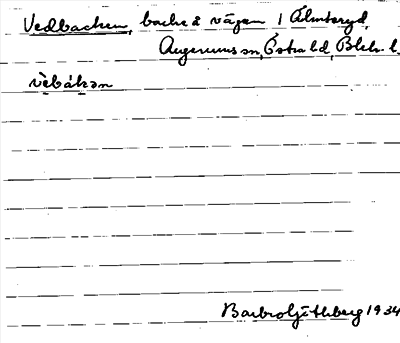 Vedbacken, backe å vägen i Älmteryd,
Augerums sn, Östra hd, Blek. l.
vèbákan
Barbro Ljithberg 1934